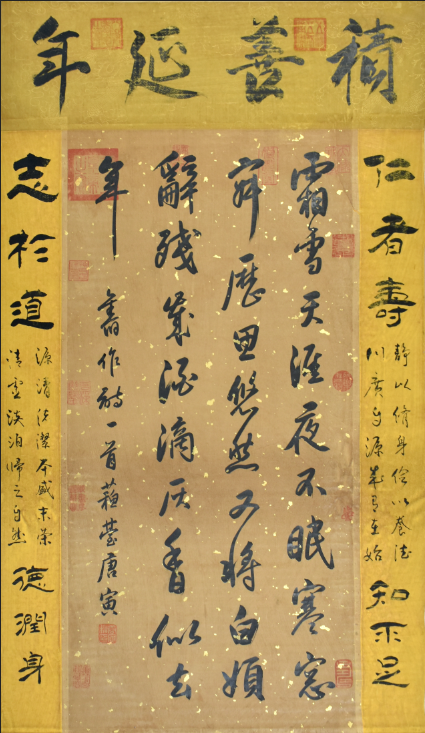 積善延年
仁者壽
靜以修身儉以養德
川廣自源成人在始
知不足
霜雪天涯夜不眠寒窓
寂歷思悠然又將白頭
辭殘歲酒滴灰香似去
年
舊作詩一首蘇臺唐寅
志於道
源清流潔本盛末榮
清虛淡泊歸之自然
德潤身